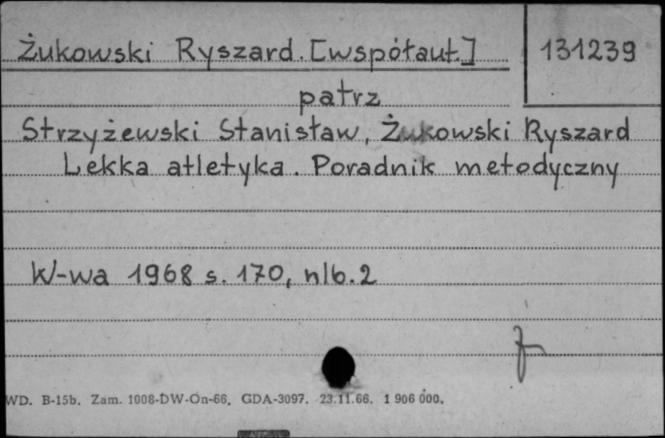 Żukowski Ryszard. [współaut.]
131239
patrz
Strzyżewski Stanisław, Żukowski Ryszard
Lekka atletyka. Poradnik metodyczny
W-wa 1968 s. 170, nlb. 2
WD. B-15b. Zam. 1008-DW-On-66. GDA-3097. 23.11.66. 1 906 000.